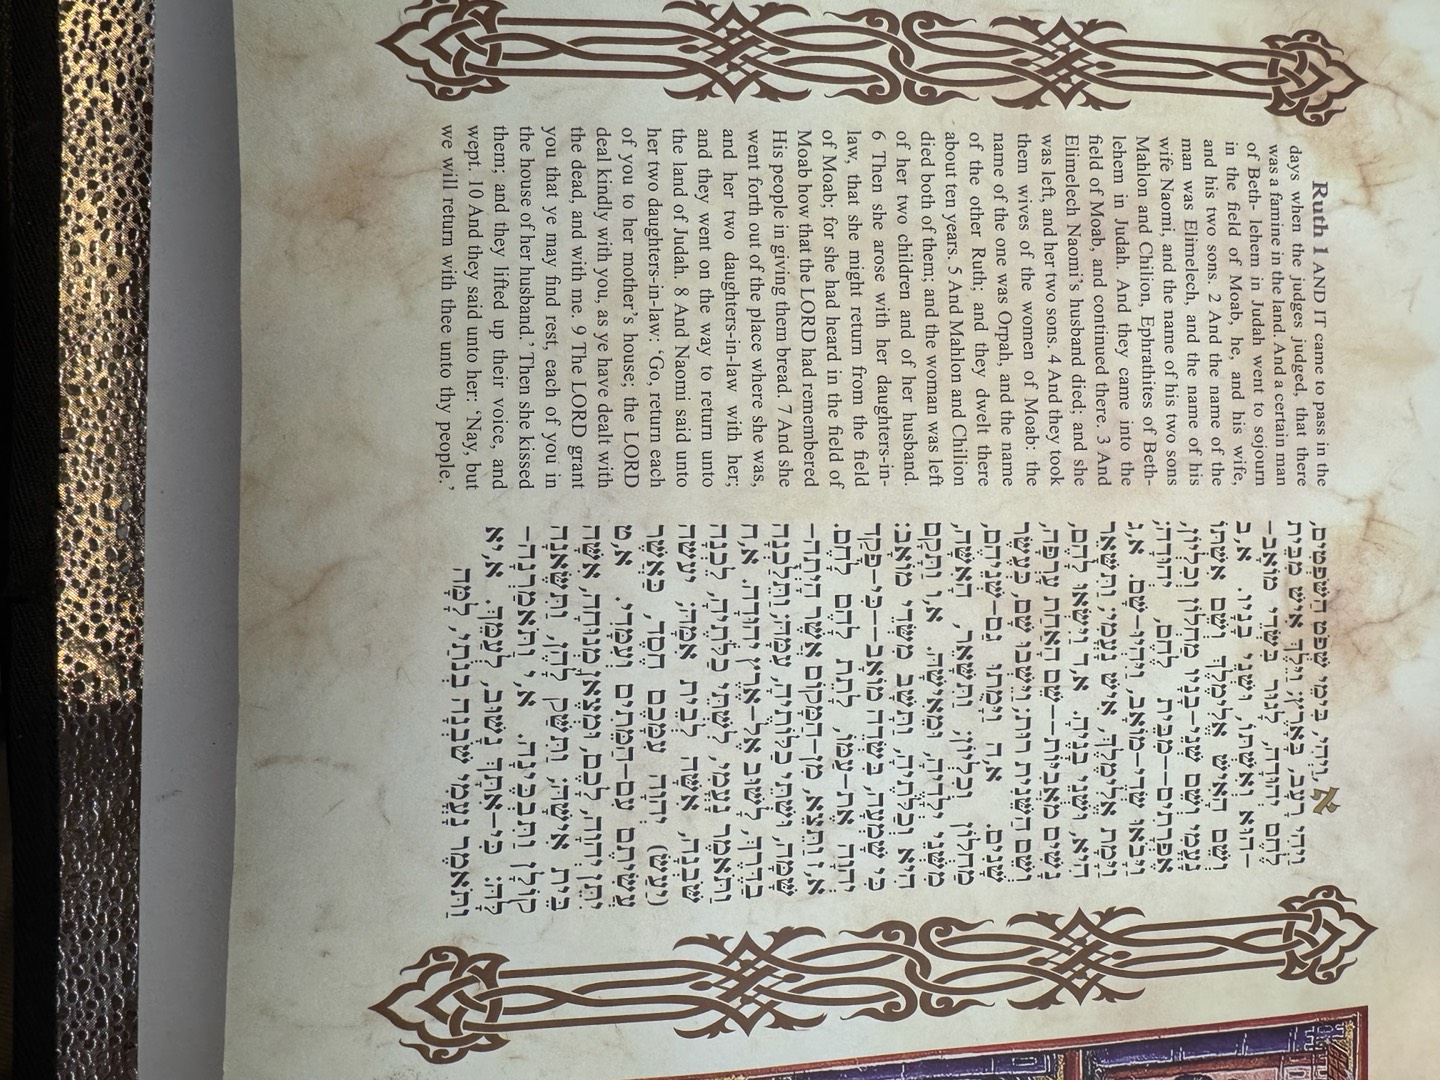 Ruth 1 AND IT came to pass in the
days when the judges judged, that there
was a famine in the land. And a certain man
of Beth- lehem in Judah went to sojourn
in the field of Moab, he, and his wife,
and his two sons. 2 And the name of the
man was Elimelech, and the name of his
wife Naomi, and the name of his two sons
Mahlon and Chilion, Ephrathites of Beth-
lehem in Judah. And they came into the
field of Moab, and continued there. 3 And
Elimelech Naomi's husband died; and she
was left, and her two sons. 4 And they took
them wives of the women of Moab: the
name of the one was Orpah, and the name
of the other Ruth; and they dwelt there
about ten years. 5 And Mahlon and Chilion
died both of them; and the woman was left
of her two children and of her husband.
6 Then she arose with her daughters-in-
law, that she might return from the field
of Moab; for she had heard in the field of
Moab how that the LORD had remembered
His people in giving them bread. 7 And she
went forth out of the place where she was,
and her two daughters-in-law with her;
and they went on the way to return unto
the land of Judah. 8 And Naomi said unto
her two daughters-in-law: 'Go, return each
of you to her mother's house; the LORD
deal kindly with you, as ye have dealt with
the dead, and with me. 9 The LORD grant
you that ye may find rest, each of you in
the house of her husband.' Then she kissed
them; and they lifted up their voice, and
wept. 10 And they said unto her: 'Nay, but
we will return with thee unto thy people.'
א, וַיְהִי, בִּימֵי שְׁפֹט הַשֹּׁפְטִים,
וַיְהִי רָעָב, בָּאָרֶץ; וַיֵּלֶךְ אִישׁ מִבֵּית
לֶחֶם יְהוּדָה, לָגוּר בִּשְׂדֵי מוֹאָב--
הוּא וְאִשְׁתּוֹ, וּשְׁנֵי בָנָיו. א,ב
וְשֵׁם הָאִישׁ אֱלִימֶלֶךְ וְשֵׁם אִשְׁתּוֹ
נָעֳמִי וְשֵׁם שְׁנֵי-בָנָיו מַחְלוֹן וְכִלְיוֹן,
אֶפְרָתִים--מִבֵּית לֶחֶם, יְהוּדָה;
וַיָּבֹאוּ שְׂדֵי-מוֹאָב, וַיִּהְיוּ-שָׁם. א,ג
וַיָּמָת אֱלִימֶלֶךְ, אִישׁ נָעֳמִי; וַתִּשָּׁאֵר
הִיא, וּשְׁנֵי בָנֶיהָ. א,ד וַיִּשְׂאוּ לָהֶם,
נָשִׁים מֹאֲבִיּוֹת--שֵׁם הָאַחַת עָרְפָּה,
וְשֵׁם הַשֵּׁנִית רוּת; וַיֵּשְׁבוּ שָׁם, כְּעֶשֶׂר
שָׁנִים. א,ה וַיָּמֻתוּ גַם-שְׁנֵיהֶם,
מַחְלוֹן וְכִלְיוֹן; וַתִּשָּׁאֵר, הָאִשָּׁה,
מִשְּׁנֵי יְלָדֶיהָ, וּמֵאִישָׁהּ. א,ו וַתָּקָם
הִיא וְכַלֹּתֶיהָ, וַתָּשָׁב מִשְּׂדֵי מוֹאָב:
כִּי שָׁמְעָה, בִּשְׂדֵה מוֹאָב--כִּי-פָקַד
יְהוָה אֶת-עַמּוֹ, לָתֵת לָהֶם לָחֶם.
א,ז וַתֵּצֵא, מִן-הַמָּקוֹם אֲשֶׁר הָיְתָה-
שָׁמָּה, וּשְׁתֵּי כַלּוֹתֶיהָ, עִמָּהּ; וַתֵּלַכְנָה
בַדֶּרֶךְ, לָשׁוּב אֶל-אֶרֶץ יְהוּדָה. א,ח
וַתֹּאמֶר נָעֳמִי, לִשְׁתֵּי כַלֹּתֶיהָ, לֵכְנָה
שֹּׁבְנָה, אִשָּׁה לְבֵית אִמָּהּ; יעשה
(יַעַשׂ) יְהוָה עִמָּכֶם חֶסֶד, כַּאֲשֶׁר
עֲשִׂיתֶם עִם-הַמֵּתִים וְעִמָּדִי. א,ט
יִתֵּן יְהוָה, לָכֶם, וּמְצֶאןָ מְנוּחָה, אִשָּׁה
בֵּית אִישָׁהּ; וַתִּשַּׁק לָהֶן, וַתִּשֶּׂאנָה
קוֹלָן וַתִּבְכֶּינָה. א,י וַתֹּאמַרְנָה-
לָּהּ: כִּי-אִתָּךְ נָשׁוּב, לְעַמֵּךְ. א,יא
וַתֹּאמֶר נָעֳמִי שֹׁבְנָה בְנֹתַי, לָמָּה